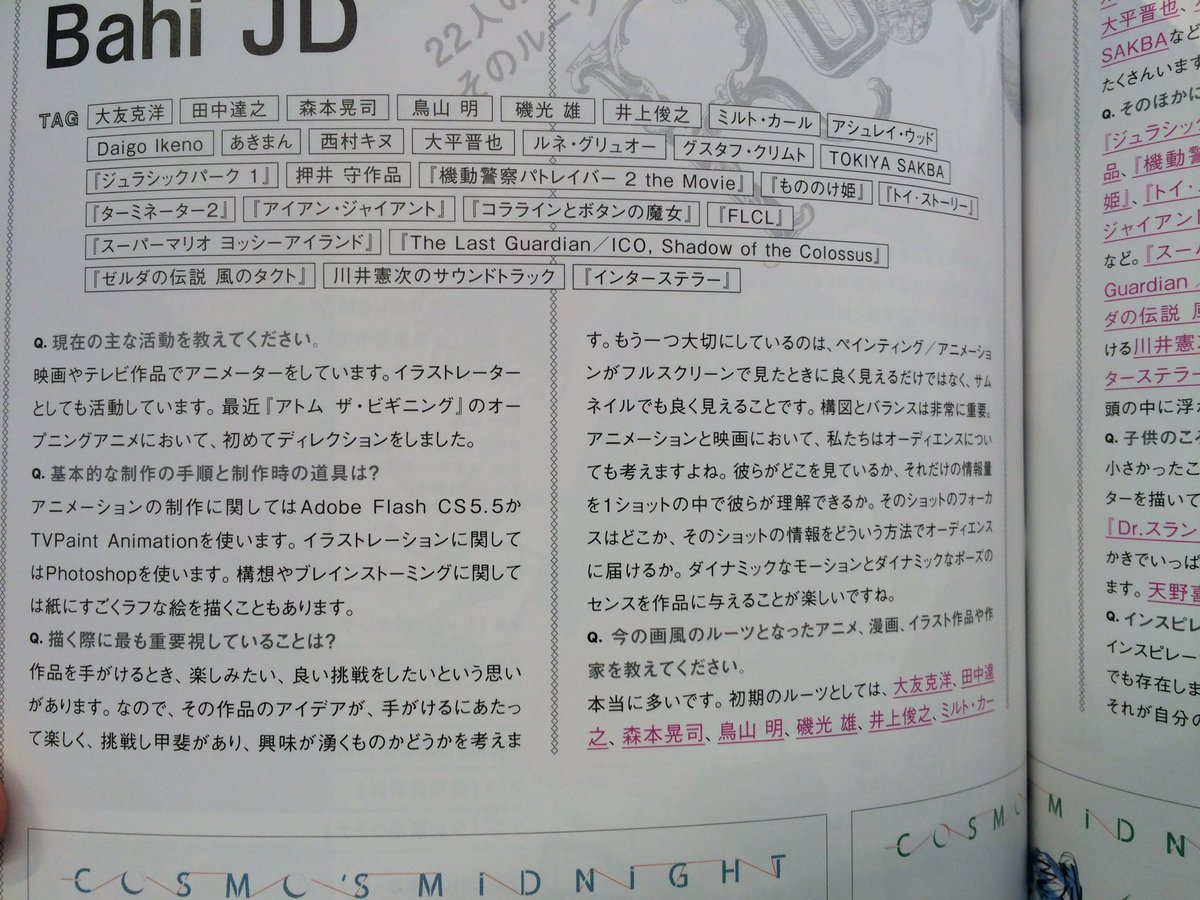 Bahi JD
22人の
そのルーツ
TAG 大友克洋 田中達之 森本晃司 鳥山 明 磯光 雄 井上俊之 ミルト・カール アシュレイ・ウッド
Daigo Ikeno あきまん 西村キヌ 大平晋也 ルネ・グリュオー グスタフ・クリムト TOKIYA SAKBA
『ジュラシックパーク 1』 押井 守作品 『機動警察パトレイバー 2 the Movie』 『もののけ姫』 『トイ・ストーリー』
『ターミネーター2』 『アイアン・ジャイアント』 『コララインとボタンの魔女』 『FLCL』
『スーパーマリオ ヨッシーアイランド』 『The Last Guardian／ICO, Shadow of the Colossus』
『ゼルダの伝説 風のタクト』 川井憲次のサウンドトラック 『インターステラー』
Q. 現在の主な活動を教えてください。
映画やテレビ作品でアニメーターをしています。イラストレーター
としても活動しています。最近『アトム ザ・ビギニング』のオー
プニングアニメにおいて、初めてディレクションをしました。
Q. 基本的な制作の手順と制作時の道具は?
アニメーションの制作に関してはAdobe Flash CS5.5か
TVPaint Animationを使います。イラストレーションに関して
はPhotoshopを使います。構想やブレインストーミングに関して
は紙にすごくラフな絵を描くこともあります。
Q. 描く際に最も重要視していることは?
作品を手がけるとき、楽しみたい、良い挑戦をしたいという思い
があります。なので、その作品のアイデアが、手がけるにあたっ
て楽しく、挑戦し甲斐があり、興味が湧くものかどうかを考えま
す。もう一つ大切にしているのは、ペインティング／アニメーショ
ンがフルスクリーンで見たときに良く見えるだけではなく、サム
ネイルでも良く見えることです。構図とバランスは非常に重要。
アニメーションと映画において、私たちはオーディエンスについ
ても考えますよね。彼らがどこを見ているか、それだけの情報量
を1ショットの中で彼らが理解できるか。そのショットのフォーカ
スはどこか、そのショットの情報をどういう方法でオーディエンス
に届けるか。ダイナミックなモーションとダイナミックなポーズの
センスを作品に与えることが楽しいですね。
Q. 今の画風のルーツとなったアニメ、漫画、イラスト作品や作
家を教えてください。
本当に多いです。初期のルーツとしては、大友克洋、田中達
之、森本晃司、鳥山 明、磯光 雄、井上俊之、ミルト・カー
大平晋也、
SAKBAなど
たくさんいます
Q. そのほかに
『ジュラシック
品、『機動警
姫』、『トイ・
ジャイアント
など。『スー
Guardian
ダの伝説 風
ける川井憲
ターステラー
頭の中に浮か
Q. 子供のころ
小さかったこ
ターを描いて
『Dr.スラン
かきでいっぱ
ます。天野喜
Q. インスピレ
インスピレー
でも存在しま
それが自分の
COSMO'S MiDNiGHT
COSMO MiDN